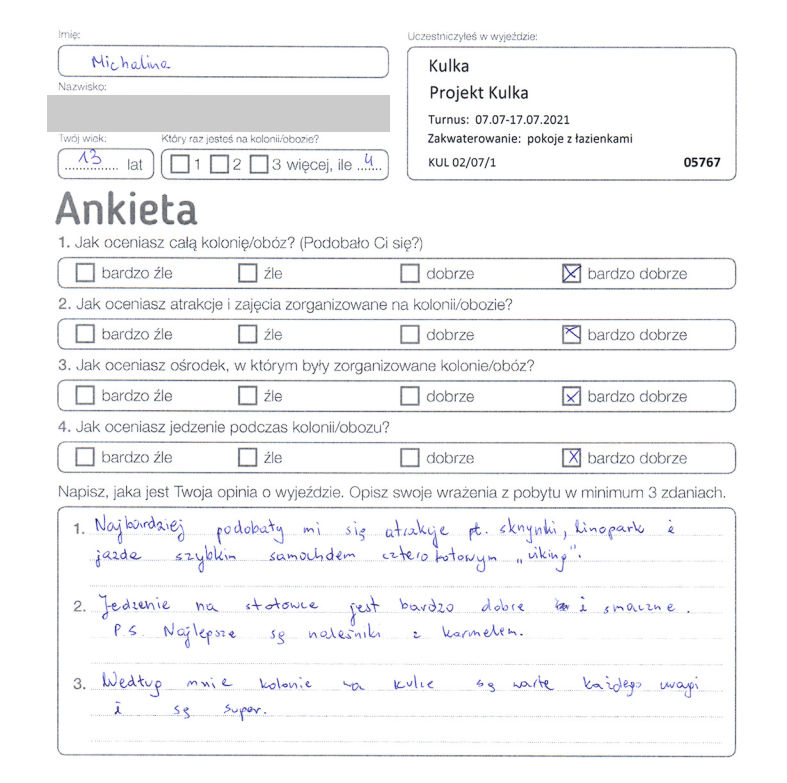 Imię:
Michalina
Nazwisko:
Twój wiek:
13 lat
Który raz jesteś na kolonii/obozie?
1 2 3 więcej, ile 4
Uczestniczyłeś w wyjeździe:
Kulka
Projekt Kulka
Turnus: 07.07-17.07.2021
Zakwaterowanie: pokoje z łazienkami
KUL 02/07/1 05767
Ankieta
1. Jak oceniasz całą kolonię/obóz? (Podobało Ci się?)
bardzo źle źle dobrze bardzo dobrze
2. Jak oceniasz atrakcje i zajęcia zorganizowane na kolonii/obozie?
bardzo źle źle dobrze bardzo dobrze
3. Jak oceniasz ośrodek, w którym były zorganizowane kolonie/obóz?
bardzo źle źle dobrze bardzo dobrze
4. Jak oceniasz jedzenie podczas kolonii/obozu?
bardzo źle źle dobrze bardzo dobrze
Napisz, jaka jest Twoja opinia o wyjeździe. Opisz swoje wrażenia z pobytu w minimum 3 zdaniach.
1. Najbardziej podobały mi się atrakcje pt. skrynki, linopark i
jazda szybkim samochdem czterokołowym „viking".
2. Jedzenie na stołówce jest bardzo dobre i smaczne.
P.S. Najlepsze są naleśniki z karmelem.
3. Według mnie kolonie na kulce są warte każdego uwagi
i są super.